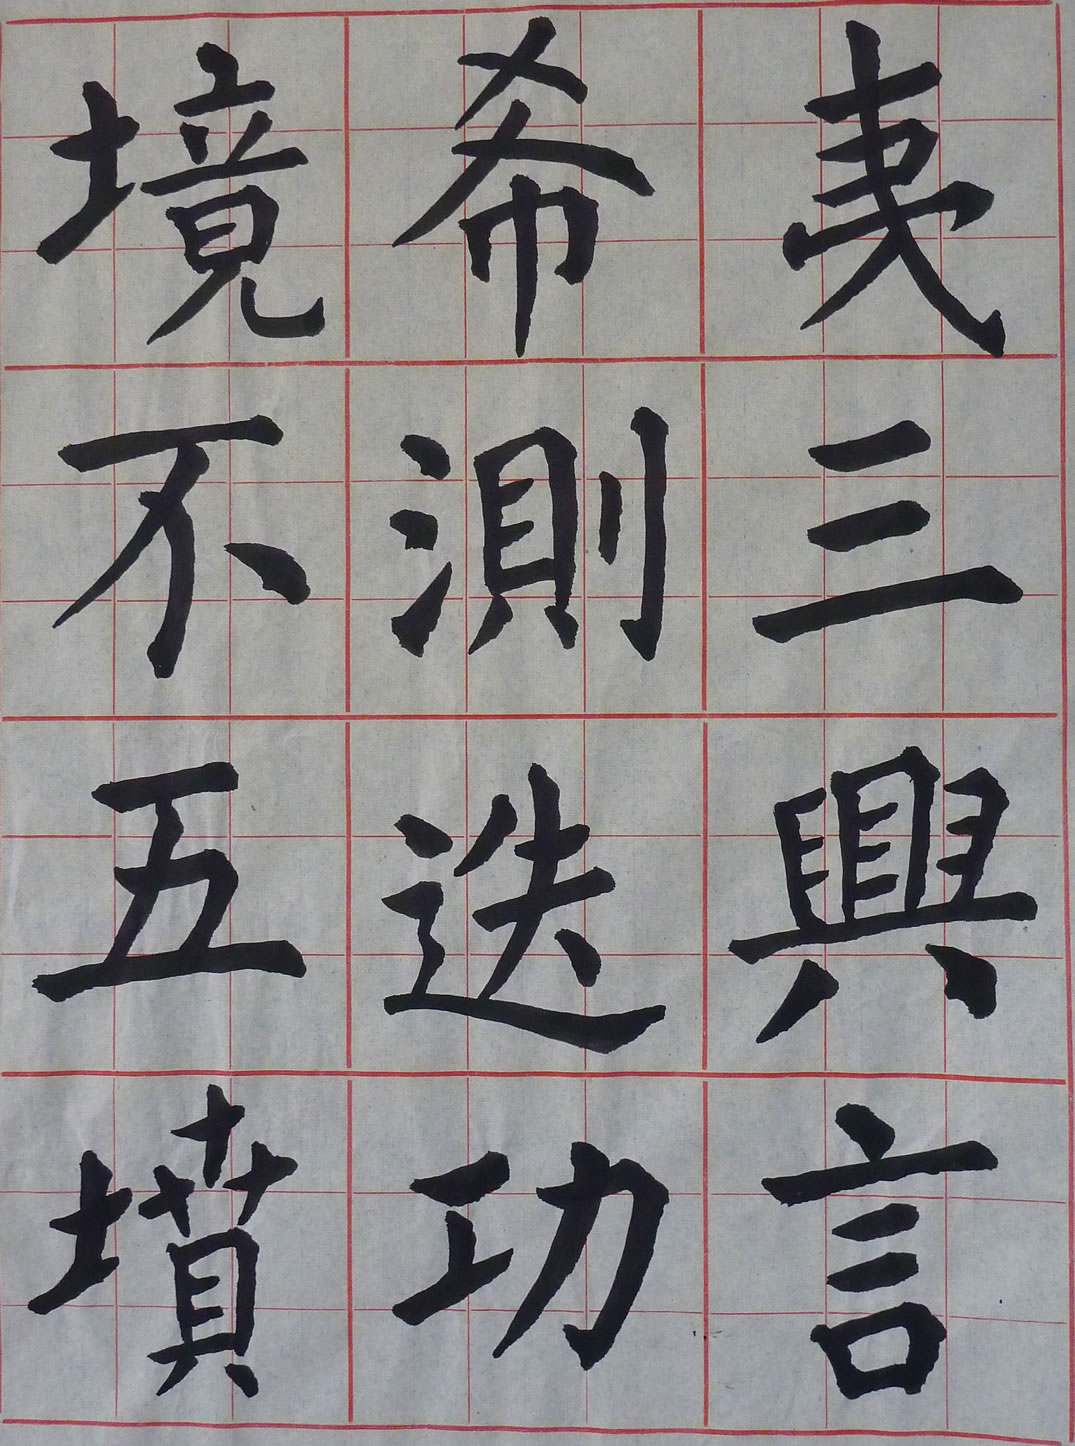 境希夷
不測三
五迭興
墳功言